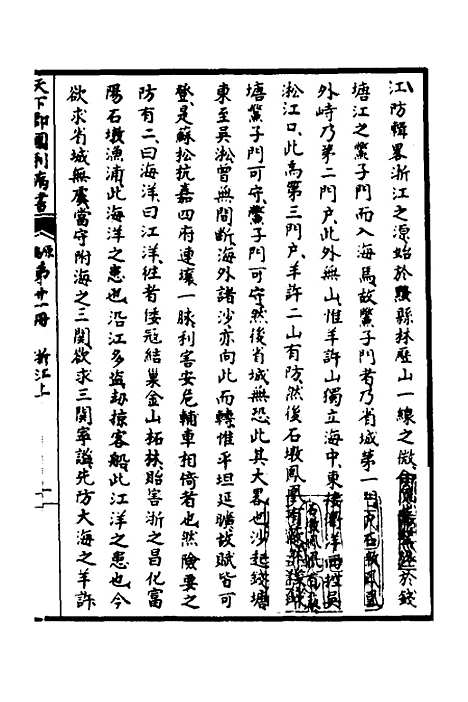 江防輯畧浙江之源始於黟縣林歷山一線之微
於錢
塘江之鱉子門而入海焉故鱉子門者乃省城第一門戶石墩鳳凰
外峙乃第二門戶此外無山惟羊許山獨立海中東接衢洋西控吳
淞江口此為第三門戶羊許二山有防然後石墩鳳凰
塘鱉子門可守鱉子門可守然後省城無恐此其大畧也沙起錢塘
東至吳淞曾無間斷海外諸沙亦向此而轉惟平坦延曠故賊皆可
登是蘇松杭嘉四府連壤一脉利害安危輔車相倚者也然險要之
防有二曰海洋曰江洋往者倭寇結巢金山柘林貽害浙之昌化富
陽石墩漁浦此海洋之患也沿江多盜劫掠客船此江洋之患也今
欲求省城無虞當守附海之三關欲求三關寧謐先防大海之羊許
天下郡國利病書
原編第廿一冊 浙江上